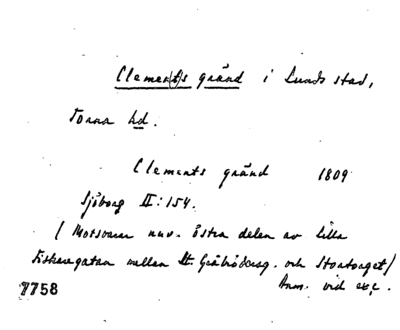 Clemen(t)s gränd i Lunds stad,
Torna hd.
Clements gränd 1809
Sjöborg II:154.
/ Motsvarar nuv. östra delen av Lilla
Fiskaregatan mellan St. Gråbrödersg. och Stortorget /
Anm. vid exc.
7758